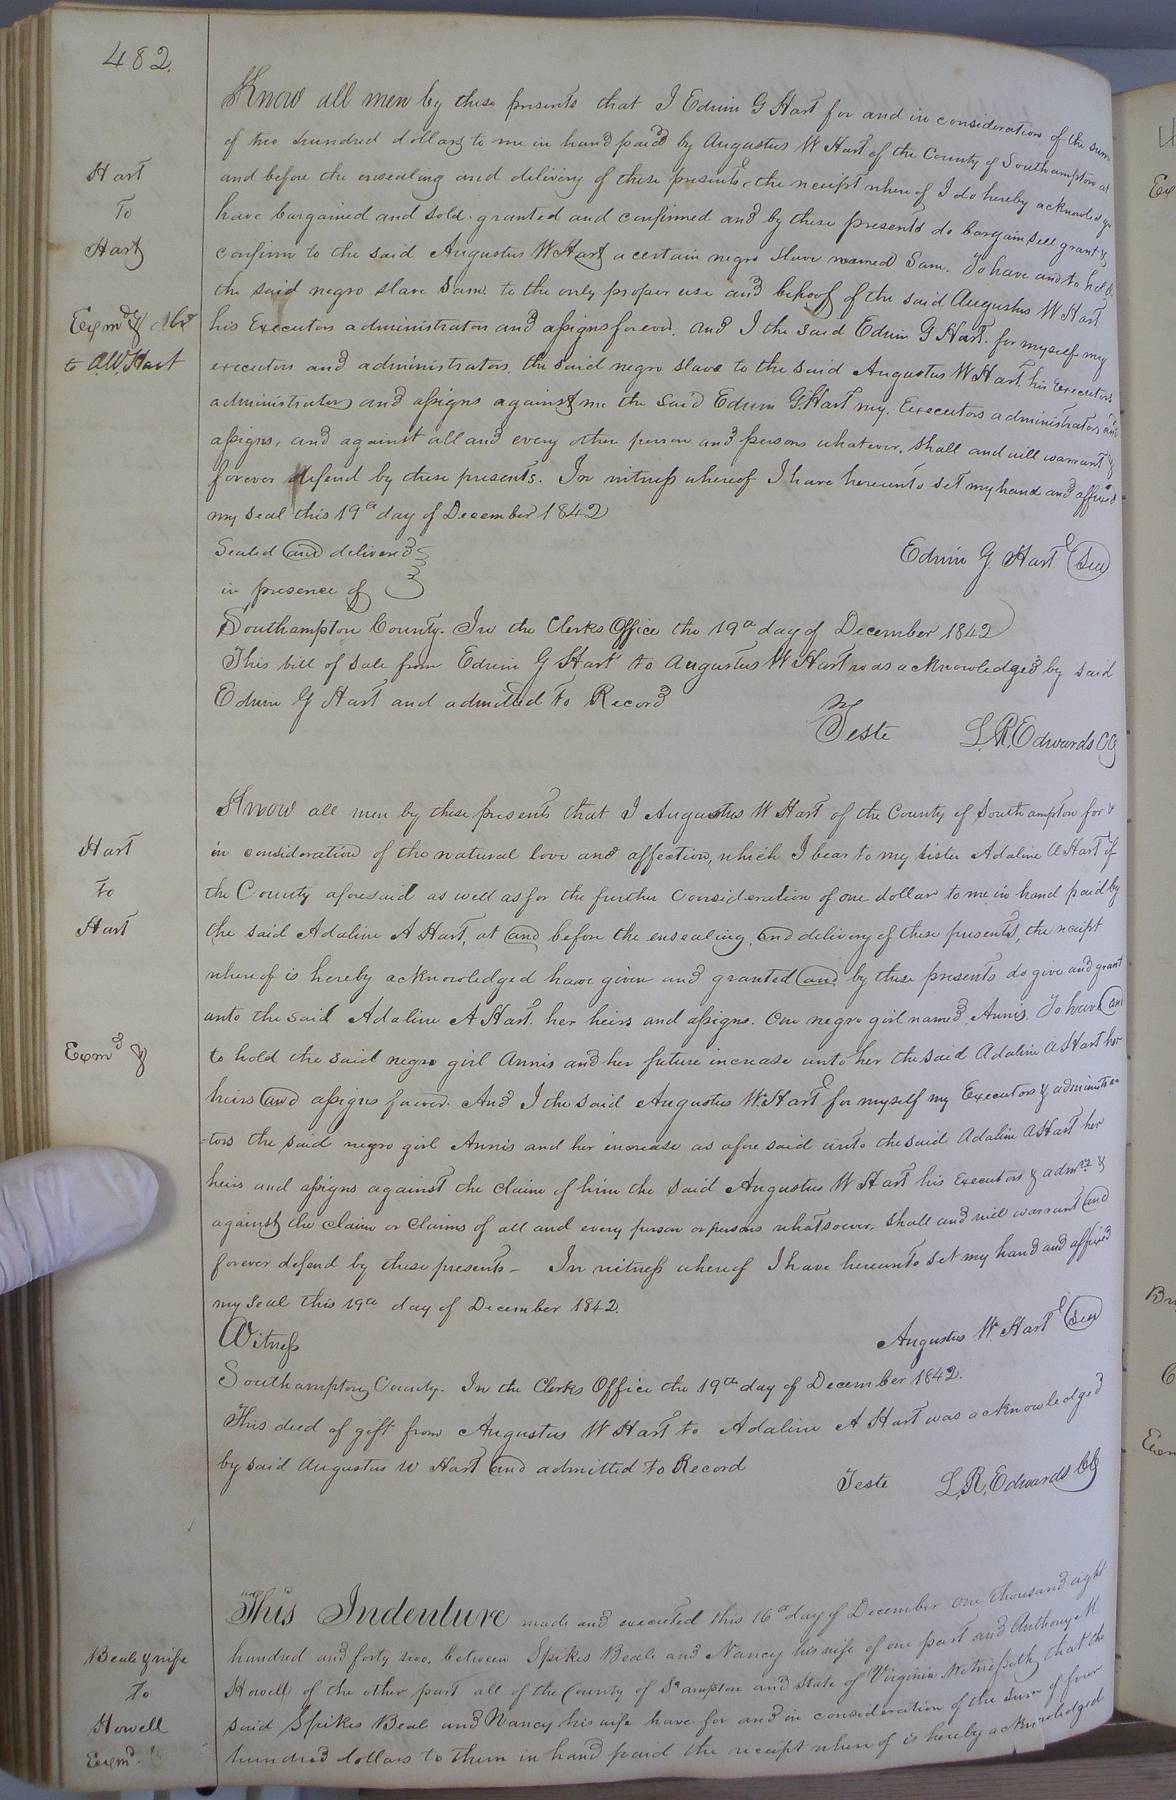 482.
Know all men by these presents that I Edwin G Hart for and in consideration of the sum
of two hundred dollars to me in hand paid by Augustus W Hart of the County of Southampton at
and before the ensealing and delivery of these presents, the receipt where of I do hereby acknowledge
have bargained and sold. granted and confirmed and by these presents do bargain sell grant &
confirm to the said Augustus W Hart a certain negro slave named Sam. To have and to hold
the said negro slave Sam. to the only proper use and behoof of the said Augustus W Hart
his Executors administrators and assigns forever. and I the said Edwin G Hart. for myself my
executors and administrators. the said negro slave to the said Augustus W Hart. his Executors
administrators and assigns against me the said Edwin G Hart my. Executors administrators and
assigns, and against all and every other person and persons whatever. shall and will warrant &
forever defend by these presents. In witness whereof I have hereunto set my hand and affixed
my seal this 19th day of December 1842
Hart
To
Hart
Exmd & dld
to A.W. Hart
Sealed and delivered
in presence of
Edwin G Hart Seal
Southampton County. In the Clerks Office the 19th day of December 1842
This bill of sale from Edwin G Hart to Augustus W Hart was acknowledged by said
Edwin G Hart and admitted to Record
Teste L.R. Edwards CC
Know all men by these presents that I Augustus W Hart of the County of Southampton for &
in consideration of the natural love and affection, which I bear to my sister Adaline A Hart of
the County aforesaid as well as for the further Consideration of one dollar to me in hand paid by
the said Adaline A Hart, at and before the ensealing and delivery of these presents, the receipt
whereof is hereby acknowledged have given and granted and by these presents do give and grant
unto the said Adaline A Hart. her heirs and assigns. One negro girl named Annis. To have and
to hold the said negro girl Annis and her future increase unto her the said Adaline A Hart her
heirs and assigns forever. And I the said Augustus W. Hart for myself my Executors & administra
-tors the said negro girl Annis and her increase as afore said unto the said Adaline A Hart her
heirs and assigns against the claim of him the said Augustus W Hart his Executors & admrs &
against the claim or claims of all and every person or persons whatsoever, shall and will warrant and
forever defend by these presents - In witness whereof I have hereunto set my hand and affixed
my seal this 19th day of December 1842.
Hart
to
Hart
Exmd &
Witness
Augustus W Hart Seal
Southampton County. In the Clerks Office the 19th day of December 1842.
This deed of gift from Augustus W Hart to Adaline A Hart was acknowledged
by said Augustus W Hart and admitted to Record
Teste L.R. Edwards CC
This Indenture made and executed this 16th day of December One thousand eight
hundred and forty two. between Spikes Beale and Nancy his wife of one part and Anthony M
Howell of the other part all of the County of S'ampton and State of Virginia Witnesseth, that the
said Spikes Beal and Nancy his wife have for and in consideration of the sum of four
hundred dollars to them in hand paid the receipt where of is hereby acknowledged
Beale & wife
To
Howell
Exmd